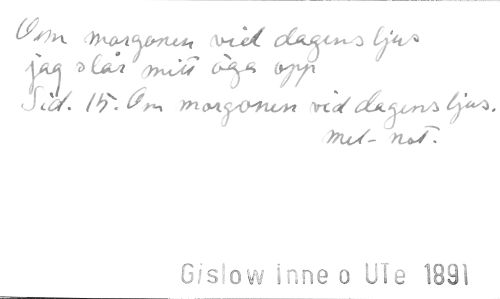 Om morgonen vid dagens ljus
jag slår mitt öga opp
Sid. 15. Om morgonen vid dagens ljus.
mel-not.
Gislow Inne o UTe 1891